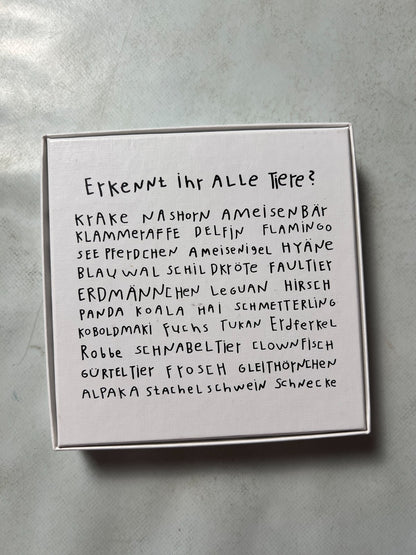 Erkennt ihr ALLE Tiere?
KRAKE NASHORN AMEISENBÄR
KLAMMERAFFE DELFIN FLAMINGO
SEEPFERDCHEN AMEISENIGEL HYÄNE
BLAUWAL SCHILDKRÖTE FAULTIER
ERDMÄNNCHEN LEGUAN HIRSCH
PANDA KOALA HAI SCHMETTERLING
KOBOLDMAKI FUCHS TUKAN Erdferkel
Robbe SCHNABELTIER CLOWNFISCH
GÜRTELTIER FROSCH GLEITHÖRNCHEN
ALPAKA STACHELSCHWEIN SCHNECKE